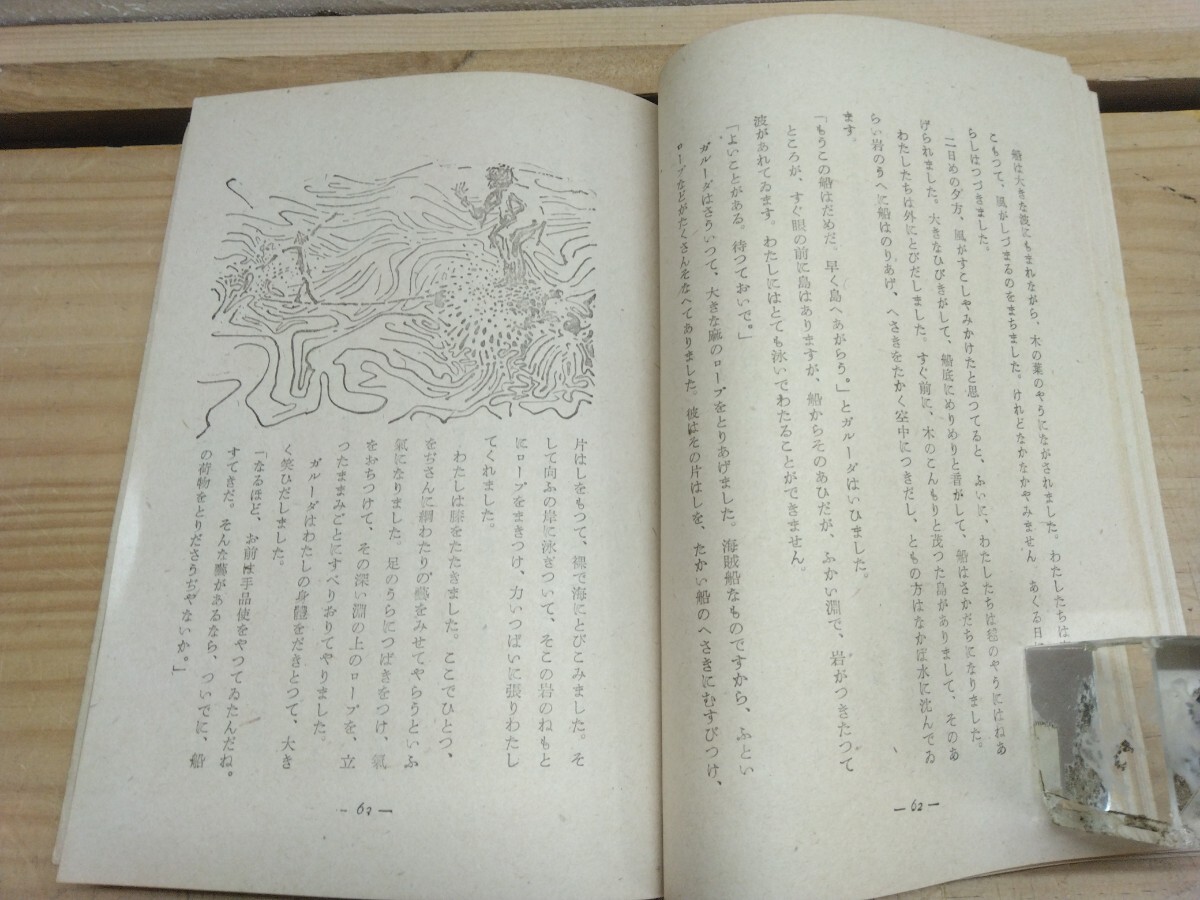 船は大きな波にもまれながら、木の葉のやうにながされました。わたしたちは
こもつて、風がしづまるのをまちました。けれどなかなかやみません　あくる日
らしはつづきました。
二日めの夕方、風がすこしやみかけたと思つてると、ふいに、わたしたちは毬のやうにはねあ
げられました。大きなひびきがして、船底にめりめりと音がして、船はさかだちになりました。
わたしたちは外にとびだしました。すぐ前に、木のこんもりと茂つた島がありまして、そのあ
らい岩のうへに船はのりあげ、へさきをたかく空中につきだし、ともの方はなかば水に沈んでゐ
ます。
「もうこの船はだめだ。早く島へあがらう。」とガルーダはいひました。
ところが、すぐ眼の前に島はありますが、船からそのあひだが、ふかい淵で、岩がつきたつて
波があれてゐます。わたしにはとても泳いでわたることができません。
「よいことがある。待つておいで。」
ガルーダはさういつて、大きな麻のロープをとりあげました。海賊船なものですから、ふとい
ロープなどがたくさんそなへてありました。彼はその片はしを、たかい船のへさきにむすびつけ、
— 62 —
片はしをもつて、裸で海にとびこみました。そ
して向ふの岸に泳ぎついて、そこの岩のねもと
にロープをまきつけ、力いつぱいに張りわたし
てくれました。
わたしは膝をたたきました。ここでひとつ、
をぢさんに綱わたりの藝をみせてやらうといふ
氣になりました。足のうらにつばきをつけ、氣
をおちつけて、その深い淵の上のロープを、立
つたままみごとにすべりおりてやりました。
ガルーダはわたしの身體をだきとつて、大き
く笑ひだしました。
「なるほど、お前は手品使をやつてゐたんだね。
すてきだ。そんな藝があるなら、ついでに、船
の荷物をとりださうぢやないか。」
— 63 —